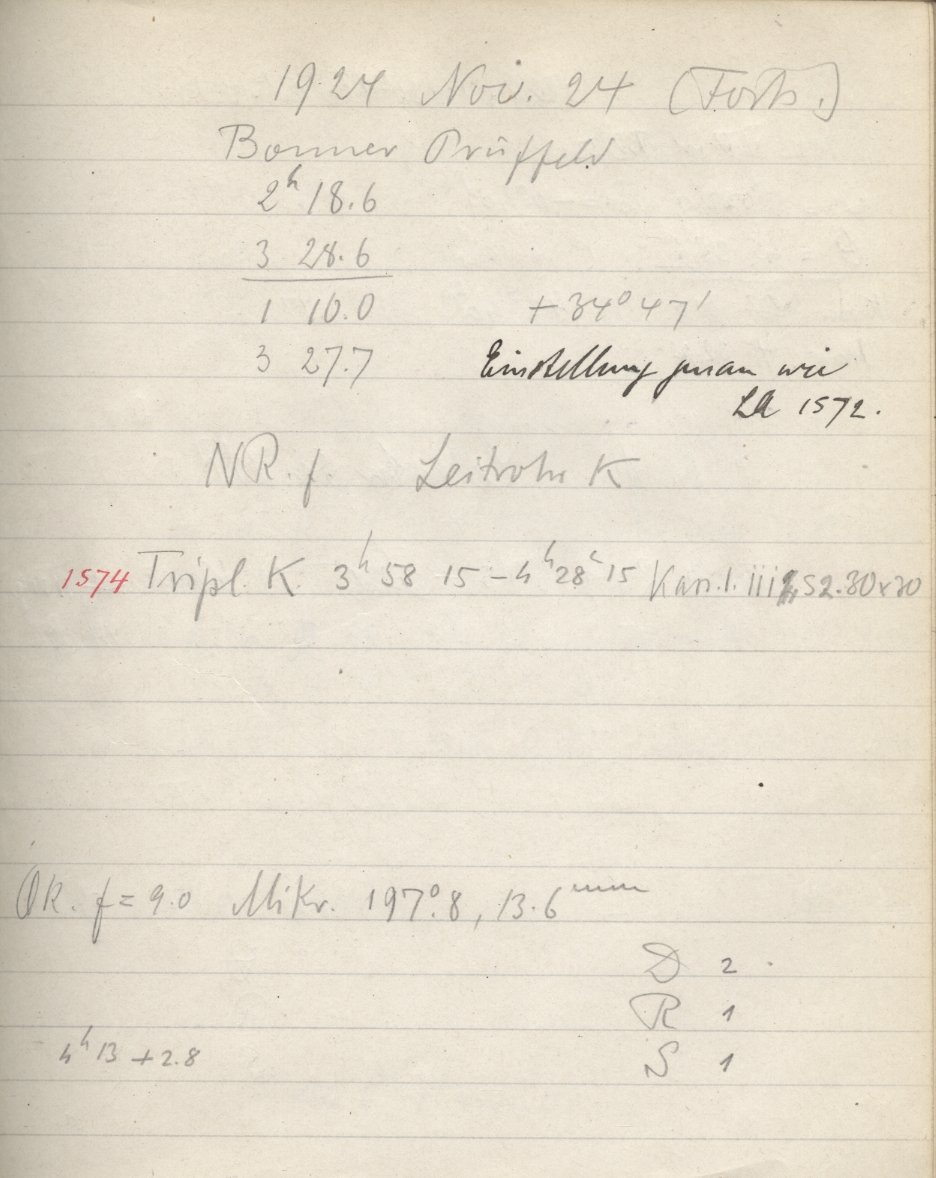 1924 Nov. 24 (Forts.)
Bonner Prüffeld
2h 18.6
3 28.6
1 10.0 +34° 47'
3 27.7 Einstellung genau wie
LA 1572.
NR. f. Leitrohr K
1574 Tripl. K. 3h 58 15 – 4h 28 15 Kas. I. iii 52. 30x30
Ok. f = 9.0 Mikr. 197°.8, 13.6mm
D 2
R 1
4h 13 +2.8 S 1